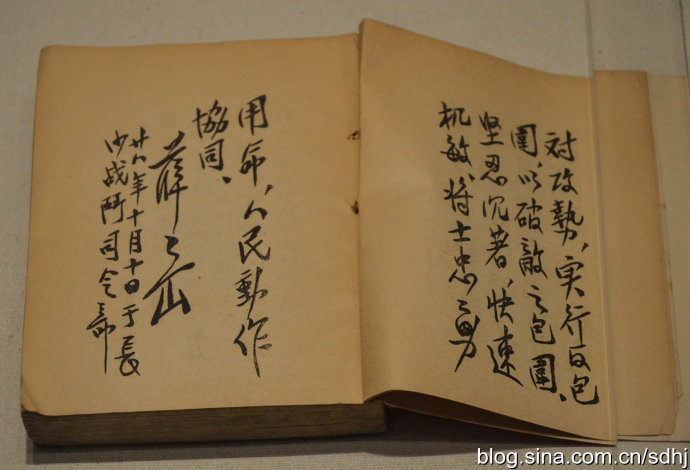 对攻勢,实行反包
圍,以破敵之包圍、
坚忍沉著,快速
机敏、将士忠勇
用命,人民動作
協同、
薛岳
廿八年十月十日于長
沙战鬥司令部
blog.sina.com.cn/sdhj